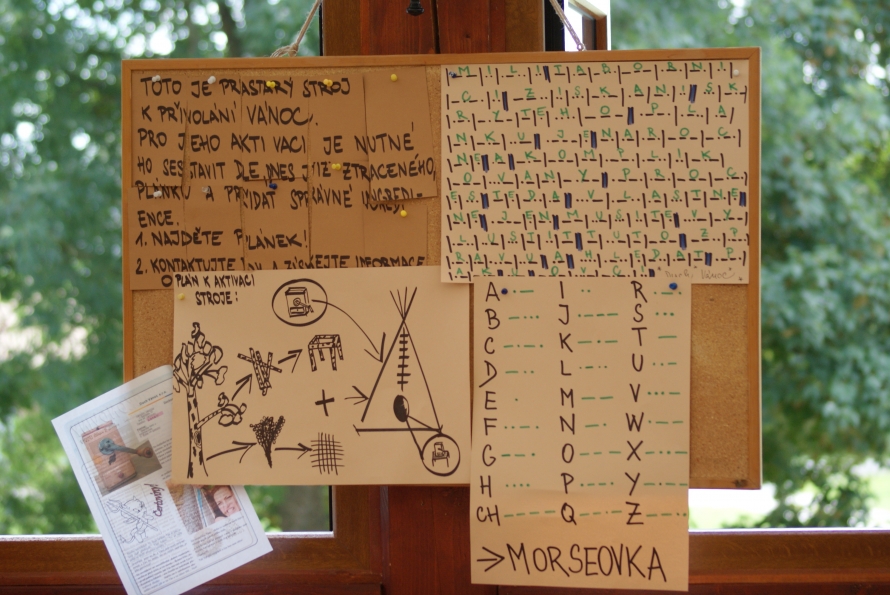 TOTO JE PRASTARÝ STROJ
K PŘIVOLÁNÍ VÁNOC.
PRO JEHO AKTIVACI JE NUTNÉ
HO SESTAVIT DLE DNES JIŽ ZTRACENÉHO,
PLÁNKU A PŘIDAT SPRÁVNÉ INGREDI-
ENCE.
1. NAJDĚTE PLÁNEK!
2. KONTAKTUJTE ZÍSKEJTE INFORMACE
M I L I T A B O R N I
C I Z I S K A N I S K
R Y T E H O P L A
N K U J E N A R O C
N E A K O M P L I K
O V A N Y P R O C
E S T E D A V L A S T N E
N E J E N M U S I T E V Y
L U S T I T T U T O Z P
R A V U A H L E D A T P
VÁNOC
PLÁN K AKTIVACI
STROJE:
+
A I R
B J S
C K T
D L U
E M V
F N W
G O X
H P Y
CH Q Z
→ MORSEOVKA